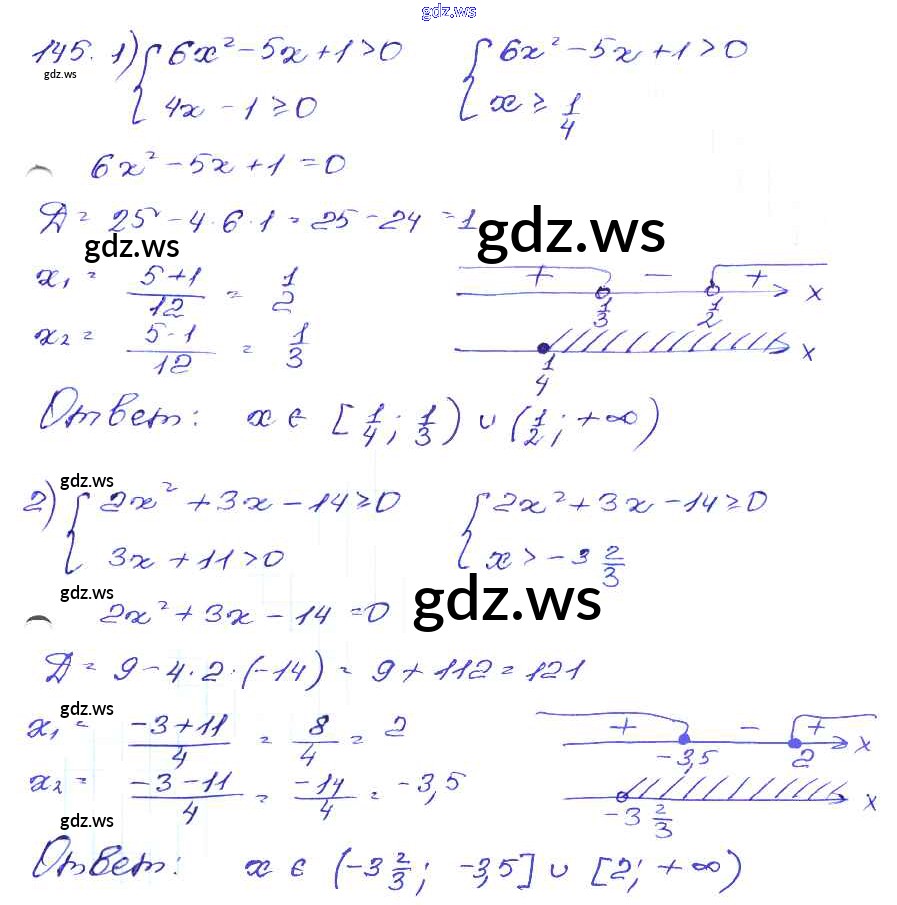 gdz.ws
145. 1) { 6x² - 5x + 1 > 0   { 6x² - 5x + 1 > 0
gdz.ws
4x - 1 ≥ 0   x ≥ 1/4
6x² - 5x + 1 = 0
Д = 25 - 4·6·1 = 25 - 24 = 1
gdz.ws
gdz.ws
x₁ = (5+1)/12 = 1/2   + - + x
1/3 1/2
x₂ = (5-1)/12 = 1/3   x
1/4
Ответ: x ∈ [1/4; 1/3) ∪ (1/2; +∞)
gdz.ws
2) { 2x² + 3x - 14 ≥ 0   { 2x² + 3x - 14 ≥ 0
3x + 11 > 0   x > -3 2/3
gdz.ws
gdz.ws
2x² + 3x - 14 = 0
Д = 9 - 4·2·(-14) = 9 + 112 = 121
gdz.ws
x₁ = (-3+11)/4 = 8/4 = 2   + - + x
-3,5 2
x₂ = (-3-11)/4 = -14/4 = -3,5   x
-3 2/3
gdz.ws
Ответ: x ∈ (-3 2/3; -3,5] ∪ [2; +∞)